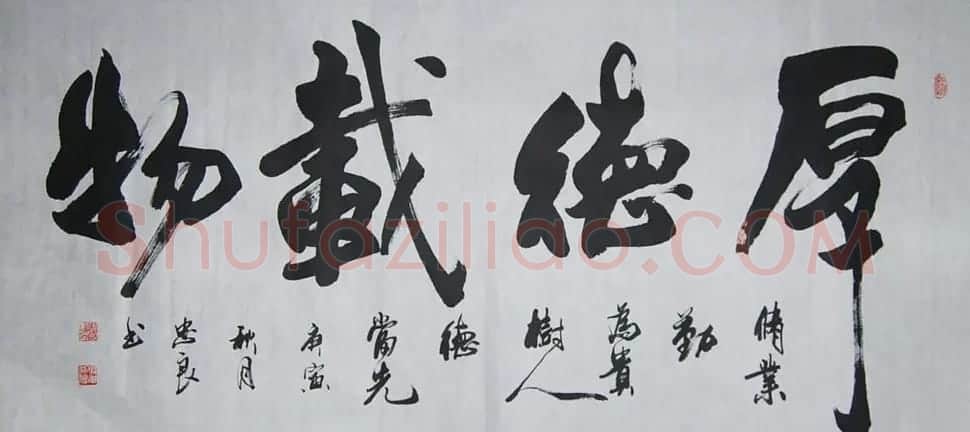 厚德載物
脩業
勤
為貴
樹人
德
當先
庚寅
秋月
忠良
书
Shufaziliao.COM